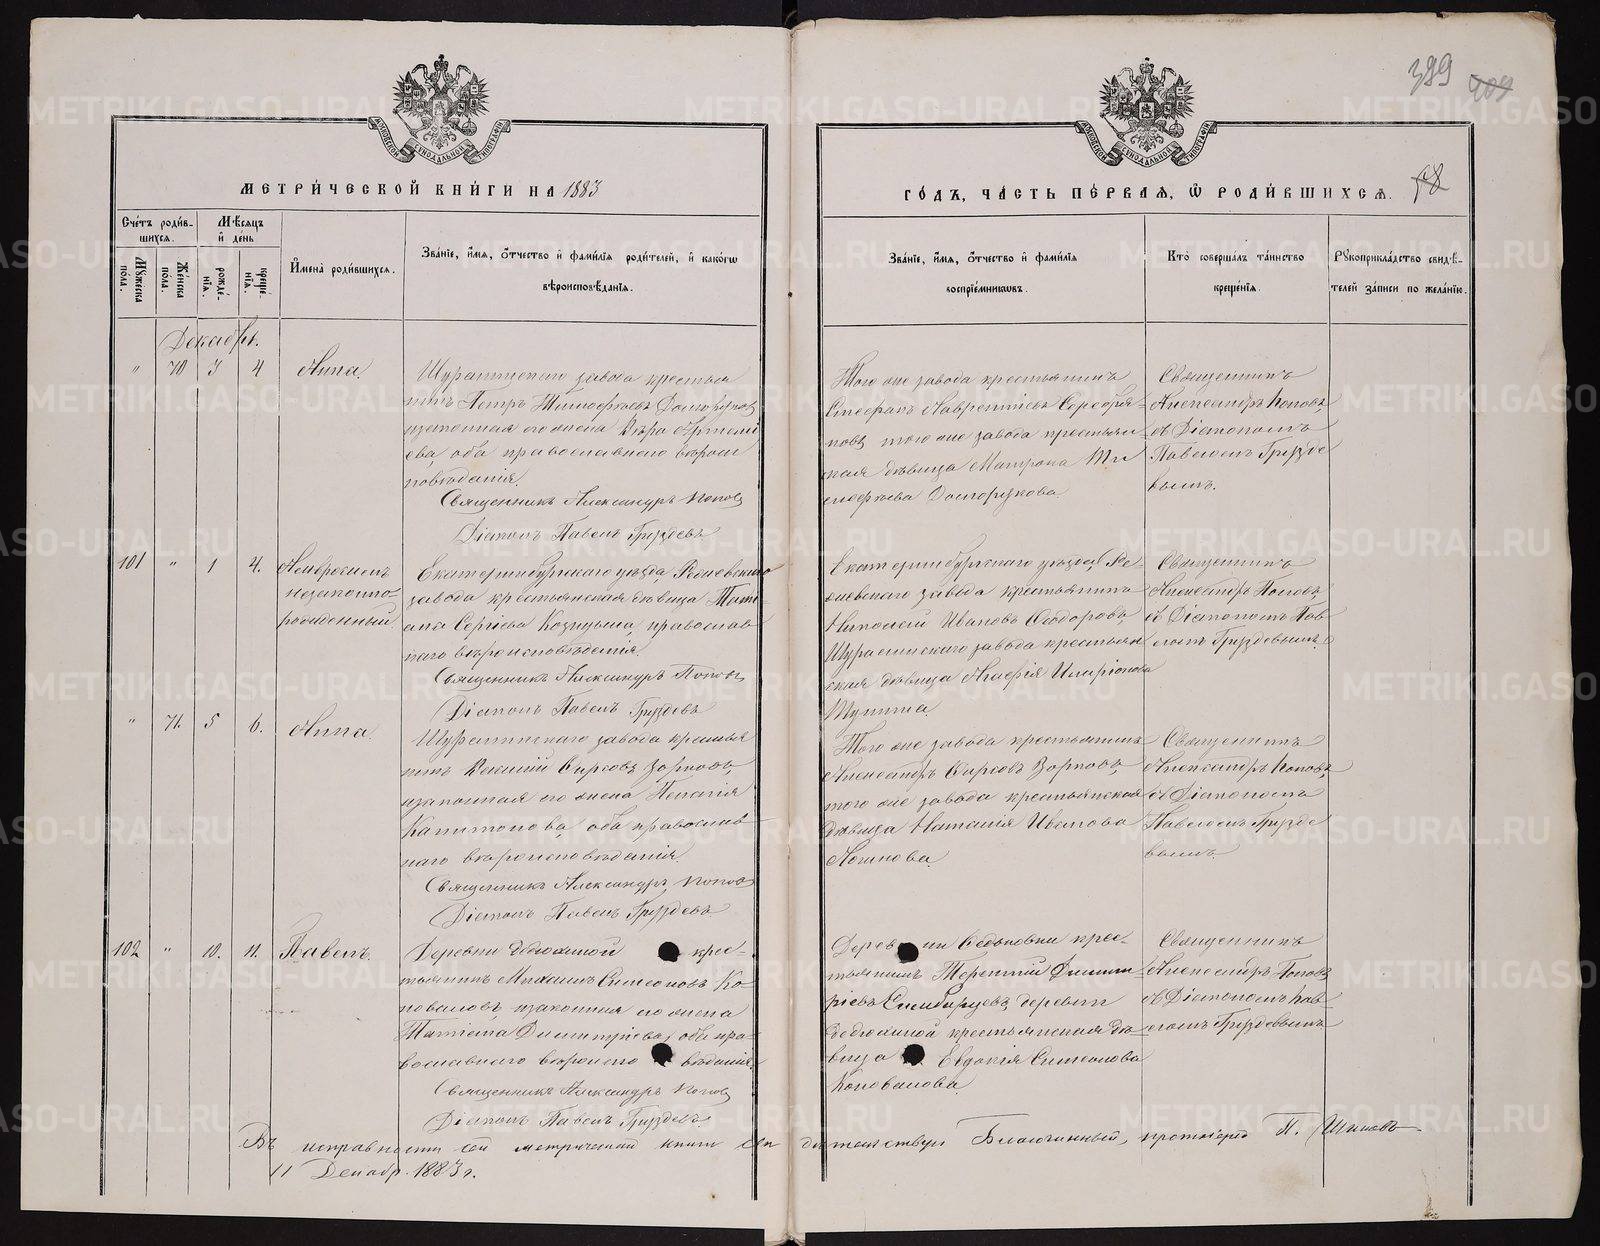 399
409
78
МОСКОВСКОЙ СѴНОДАЛЬНОЙ ТИПОГРАФІИ
МОСКОВСКОЙ СѴНОДАЛЬНОЙ ТИПОГРАФІИ
МЕТРИ́ЧЕСКОЙ КНИ́ГИ НА 1883
ГО́ДЪ, ЧА́СТЬ ПЕ́РВАЯ, Ѡ РОДИ́ВШИХСѦ.
Сче́тъ роди́в-
шихсѧ.
Мꙋжеска
пола.
Же́нска
пола.
Мѣ́сѧцъ
и҆ де́нь
рожде́-
нїѧ.
креще́-
нїѧ.
И҆мена̀ роди́вшихсѧ.
Зва́нїе, и҆́мѧ, ѻ҆́тчество и҆ фами́лїѧ роди́телей, и҆ како́гѡ
вѣроисповѣ́данїѧ.
Зва́нїе, и҆́мѧ, ѻ҆́тчество и҆ фами́лїѧ
воспрїе́мникѡвъ.
Кто̀ соверша́лъ та́инство
креще́нїѧ.
Рꙋкоприкла́дство свидѣ́-
телей за́писи по жела́нїю.
Декабрь.
" 70 3 4 Анна.
Шуралинскаго завода крестья
нинъ Петръ Тимоѳеевъ Долгоруковъ
и законная его жена Вѣра Артемі
ева, оба православнаго вѣроис
повѣданія.
Священникъ Александръ Поповъ
Діаконъ Павелъ Груздевъ
Того же завода крестьянинъ
Стефанъ Лаврентіевъ Серебря-
ковъ, того же завода крестьян
ская дѣвица Матрона Ти
моѳеева Долгорукова.
Священникъ
Александръ Поповъ,
съ Діакономъ
Павломъ Груздe
вымъ.
101 " 1 4. Амвросій
незаконно-
рожденный
Екатеринбургскаго уѣзда, Режевскаго
завода крестьянская дѣвица Тати-
ана Сергіева Козицына, православ
наго вѣроисповѣданія.
Священникъ Александръ Поповъ
Діаконъ Павелъ Груздевъ
Екатеринбургскаго уѣзда, Ре-
жевскаго завода крестьянинъ
Николай Ивановъ Ѳедоровъ,
Шуралинскаго завода крестьян
ская дѣвица Агафія Иларіонова
Шунина.
Священникъ
Александръ Поповъ,
съ Діакономъ Пав
ломъ Груздевымъ.
" 71. 5 6. Анна.
Шуралинскаго завода крестья
нинъ Василій Кирсовъ Зорковъ,
и законная его жена Пелагія
Капитонова, оба православ
наго вѣроисповѣданія.
Священникъ Александръ Поповъ
Діаконъ Павелъ Груздевъ
Того же завода крестьянинъ
Александръ Кирсовъ Зорковъ,
того же завода крестьянская
дѣвица Наталія Иванова
Логинова.
Священникъ
Александръ Поповъ,
съ Діакономъ
Павломъ Груздe
вымъ.
102 " 10. 11. Павелъ.
Деревни крес-
тьянинъ Михаилъ Симеоновъ Ко
новаловъ, и законная его жена
Татіана Димитріева, оба пра-
вославнаго вѣроиспо вѣданія.
Священникъ Александръ Поповъ
Діаконъ Павелъ Груздевъ
Дерев ни Ѳедьковки крес-
тьянинъ Терентій Димит
ріевъ Симбирцевъ, деревни
крестьянская дѣ
вица Евдокія Симеонова
Коновалова.
Священникъ
Александръ Поповъ
съ Діакономъ Пав
ломъ Груздевымъ
Въ исправности сей метрической книги свидѣтельствую Благочинный, протоіерей П. Шишевъ
11 Декабр. 1883 г.
METRIKI.GASO-URAL.RU